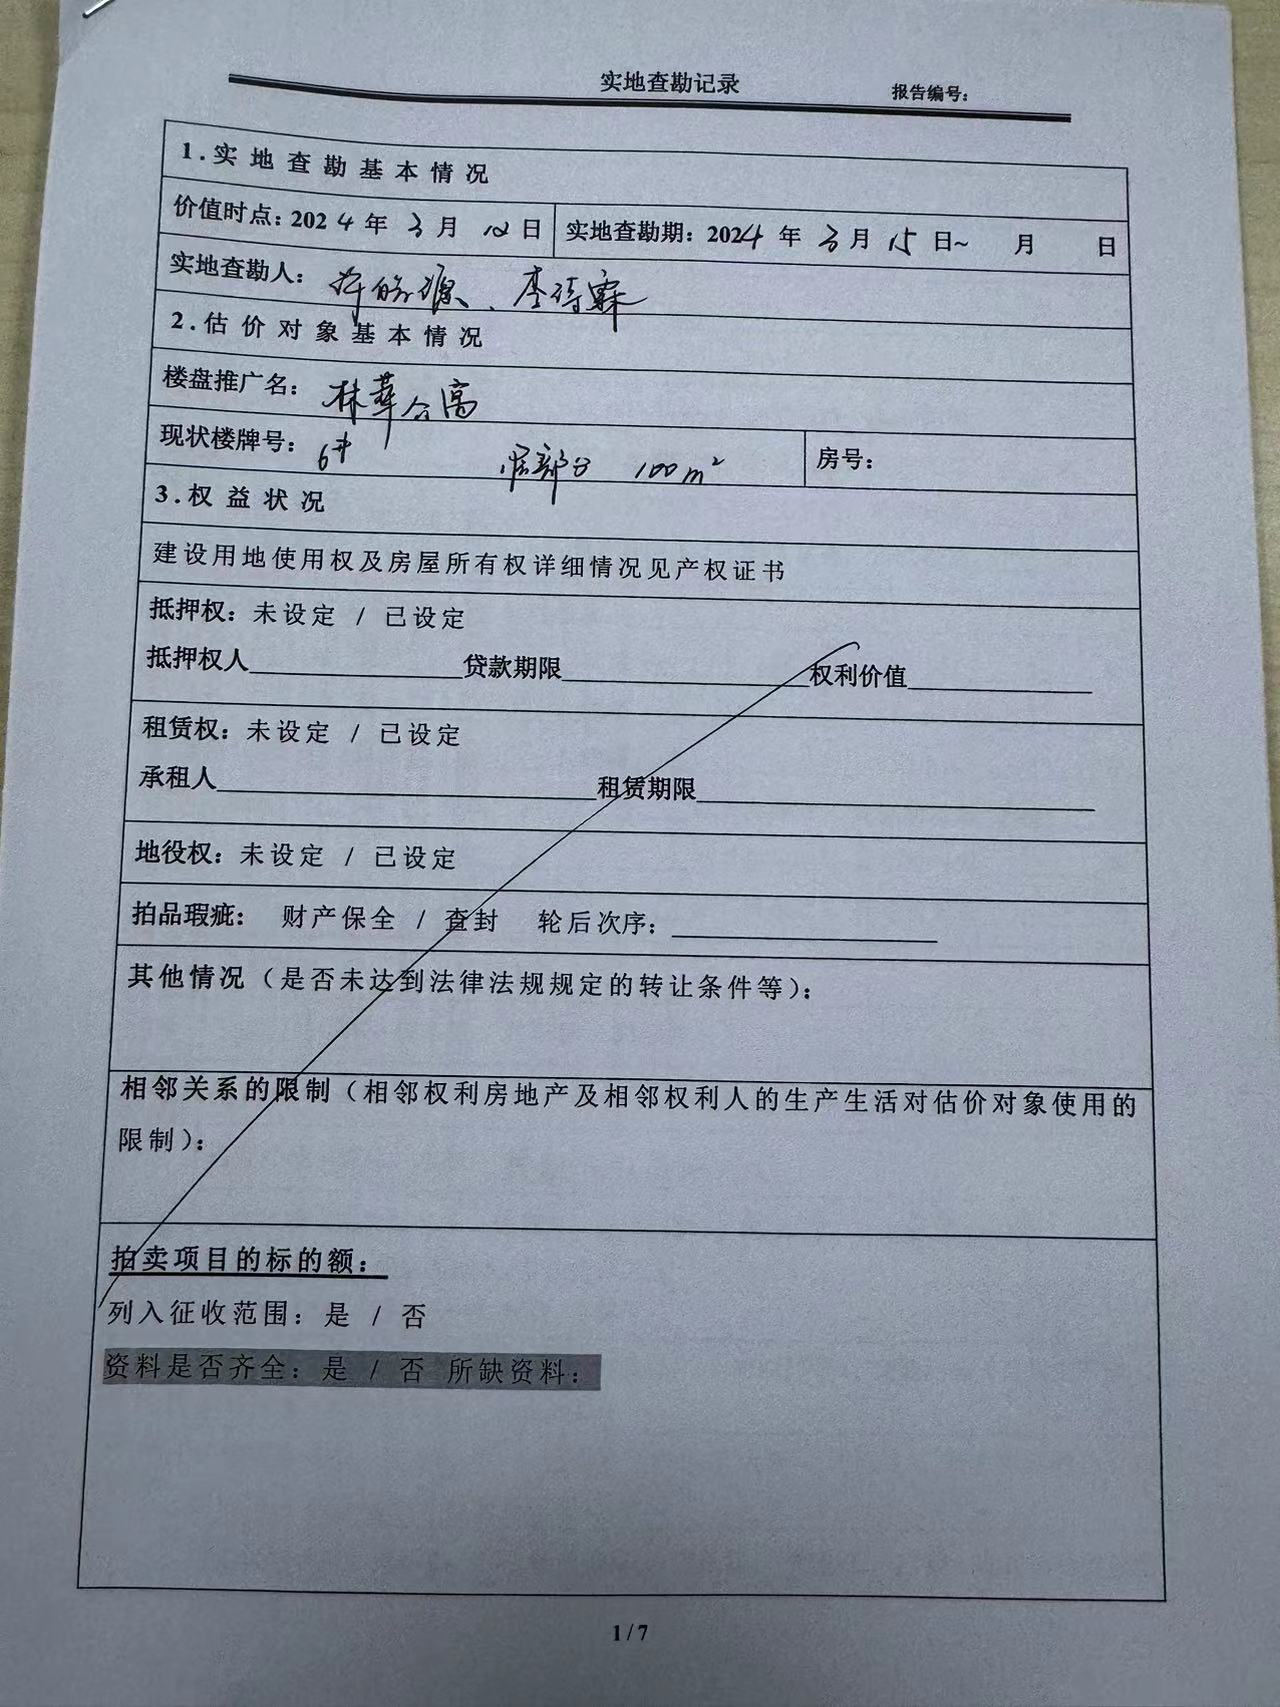 实地查勘记录 报告编号：
1.实地查勘基本情况
价值时点：2024年3月12日 实地查勘期：2024年3月15日~ 月 日
实地查勘人： 、李
2.估价对象基本情况
楼盘推广名：林華
现状楼牌号：6# 部分 100m² 房号：
3.权益状况
建设用地使用权及房屋所有权详细情况见产权证书
抵押权：未设定 / 已设定
抵押权人 贷款期限 权利价值
租赁权：未设定 / 已设定
承租人 租赁期限
地役权：未设定 / 已设定
拍品瑕疵： 财产保全 / 查封 轮后次序：
其他情况（是否未达到法律法规规定的转让条件等）：
相邻关系的限制（相邻权利房地产及相邻权利人的生产生活对估价对象使用的
限制）：
拍卖项目的标的额：
列入征收范围：是 / 否
资料是否齐全：是 / 否 所缺资料：
1/7